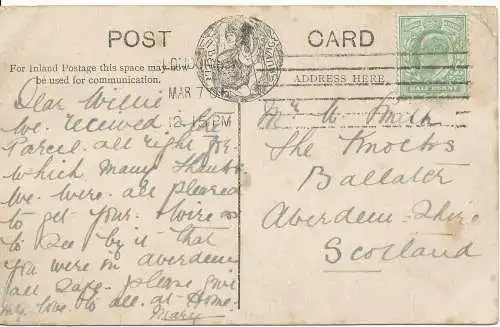 POST CARD
For Inland Postage this space may now
be used for communication.
ADDRESS HERE
MAR 7
12. PM
HALF PENNY
Dear Willie
We. received. the
Parcel. all right for.
which Many Thanks
We. were. all pleased
to get your. Wire as
to See by it that
you were on aberdeen
all Safe. please give
my love. to all. at Home.
Mary
Mr W
The Knocks
Ballater
Aberdeen-Shire
Scotland